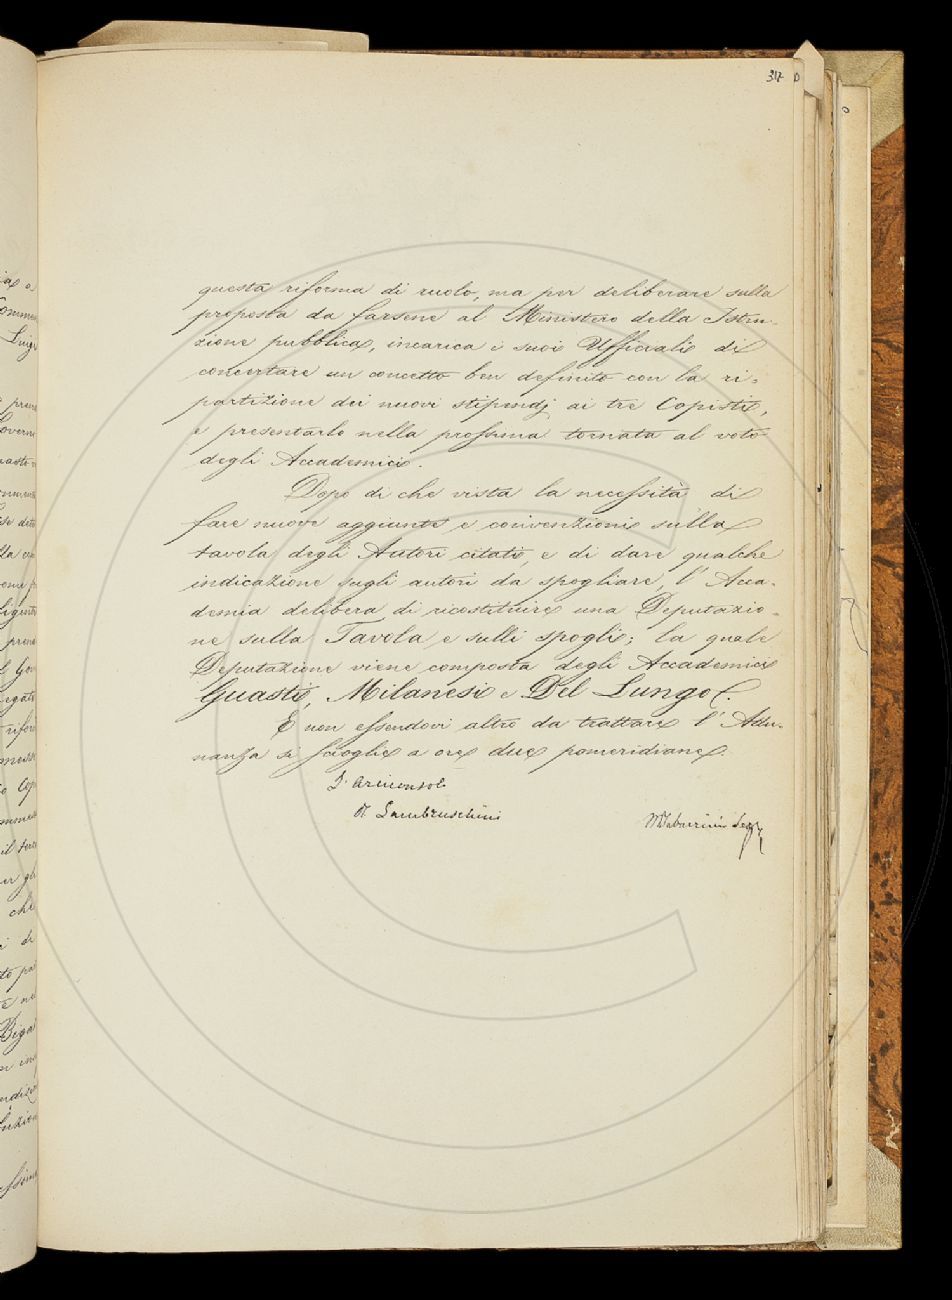 317
questa riforma di ruolo, ma per deliberare sulla
proposta da farsene al Ministero della Istru-
zione pubblica, incarica i suoi Ufficiali di
concertare un concetto ben definito con la ri-
partizione dei nuovi stipendj ai tre Copisti,
e presentarlo nella prossima tornata al voto
degli Accademici.
Dopo di che vista la necessità di
fare nuove aggiunte e convenzioni sulla
tavola degli Autori citati, e di dare qualche
indicazione sugli autori da spogliare, l'Acca-
demia delibera di ricostituire una Deputazio-
ne sulla Tavola e sulli spogli; la quale
Deputazione viene composta degli Accademici
Guasti, Milanesi e Del Lungo.
E non essendovi altro da trattare l'Adu-
nanza si scioglie a ore due pomeridiane.
L'Arciconsolo
R. Lambruschini
M Tabarrini Segr